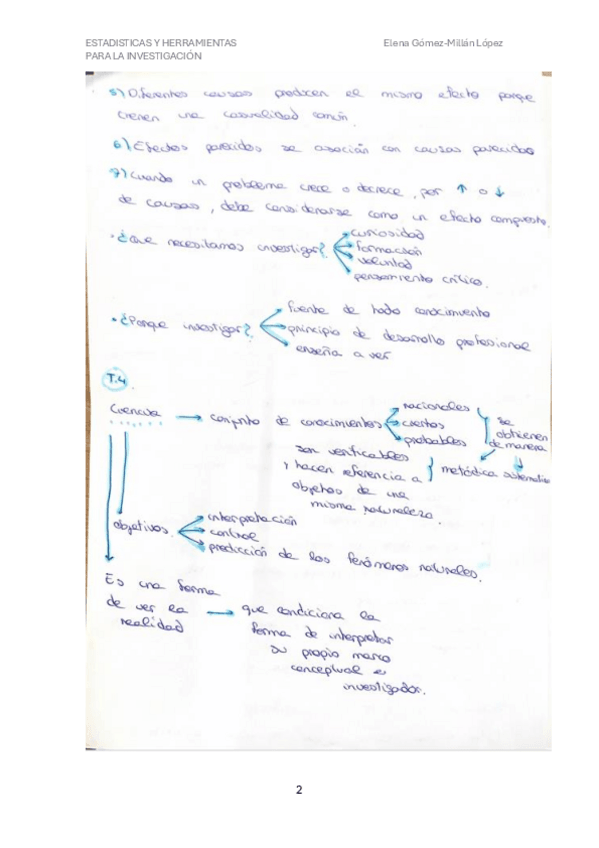 ESTADISTICAS Y HERRAMIENTAS
PARA LA INVESTIGACIÓN
Elena Gómez-Millán López
5) Diferentes causas producen el mismo efecto porque
tienen una causalidad común.
6) Efectos parecidos se asocian con causas parecidas
7) Cuando un problema crece o decrece, por ↑ o ↓
de causas, debe considerarse como un efecto compuesto.
· ¿Que necesitamos investigar?
curiosidad
formación
voluntad
pensamiento crítico.
· ¿Porque investigar?
fuente de todo conocimiento
principio de desarrollo profesional
enseña a ver
T.4
Ciencia → conjunto de conocimientos
racionales
ciertos
probables
se
obtienen
de manera
metódica sistematica
son verificables
y hacen referencia a
objetos de una
misma naturaleza.
objetivos
interpretación
control
predicción de los fenómenos naturales.
Es una forma
de ver la
realidad
→ que condiciona la
forma de interpretar
su propio marco
conceptual e
investigador.
2